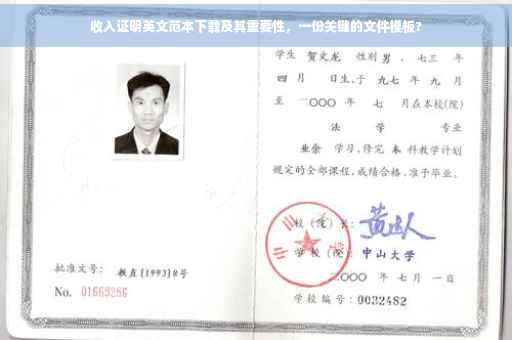 收入证明英文范本下载及其重要性，一份关键的文件模板？
学生 贺文龙 性别 男，七三 年
四 月 日生，于 九七 年 九 月
至 二〇〇〇 年 七 月在本校(院)
法 学 专业
业余 学习，修完 本 科教学计划
规定的全部课程，成绩合格，准予毕业。
校 (院) 长：
学 校 (院)：中山大学
二〇〇〇 年 七 月 一 日
学校编号：0032482
批准文号：教直[1993]8号
No. 01669286